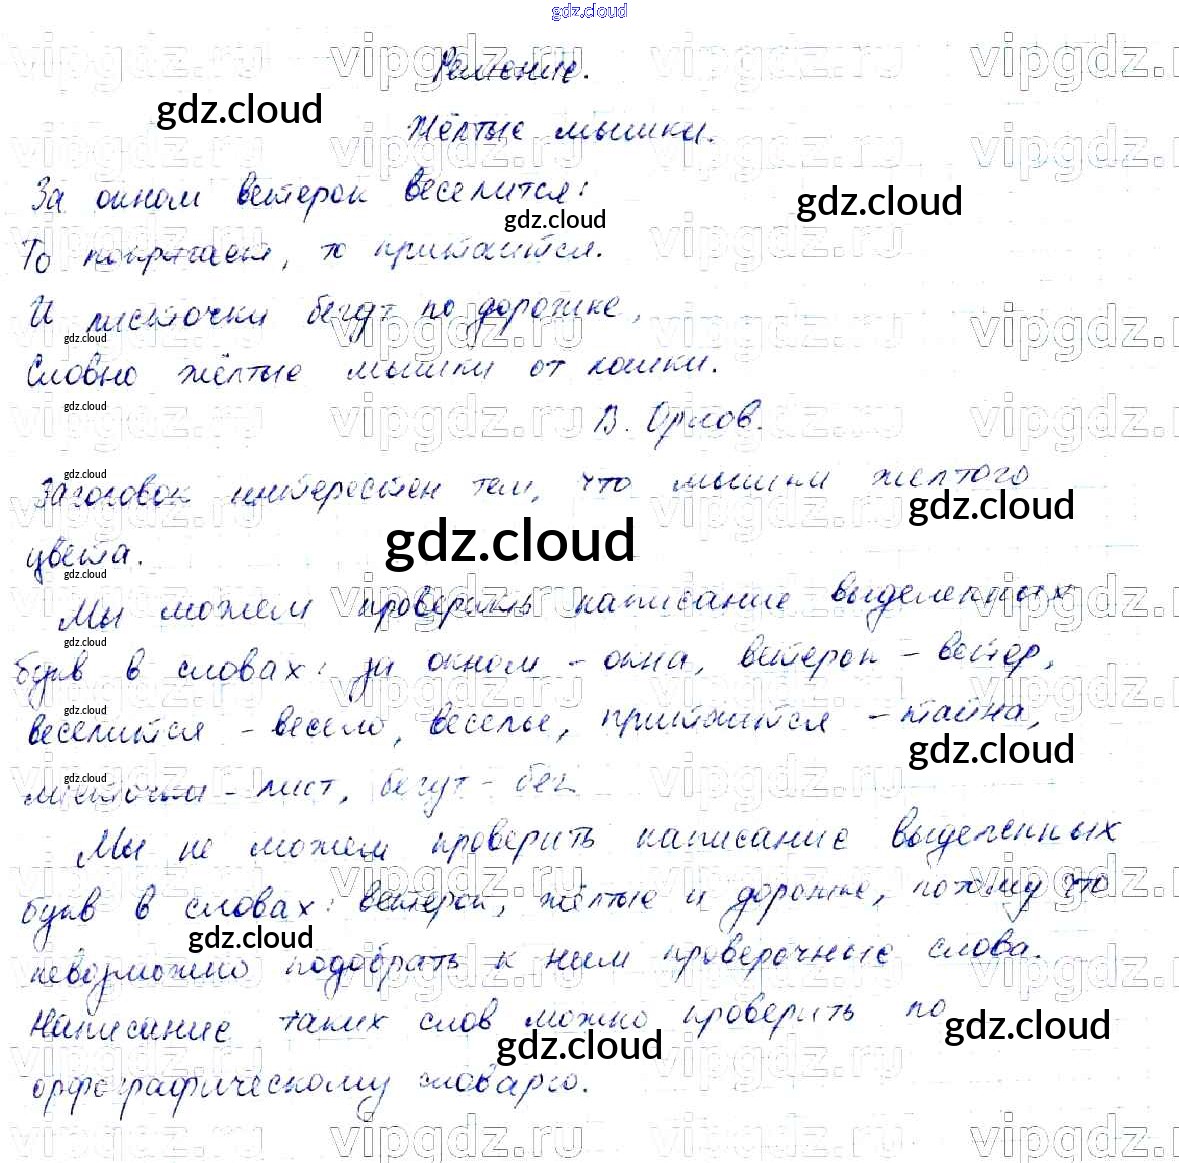 gdz.cloud
Решение.
Жёлтые мышки.
За окном ветерок веселится:
То попрыгает, то притаится.
И листочки бегут по дорожке,
Словно жёлтые мышки от кошки.
В. Орлов.
Заголовок интересен тем, что мышки желтого
цвета.
Мы можем проверить написание выделенных
букв в словах: за окном - окна, ветерок - ветер,
веселится - весело, веселье, притаится - тайна,
листочки - лист, бегут - бег
Мы не можем проверить написание выделенных
букв в словах: ветерок, жёлтые и дорожке, потому что
невозможно подобрать к ним проверочные слова.
Написание таких слов можно проверить по
орфографическому словарю.